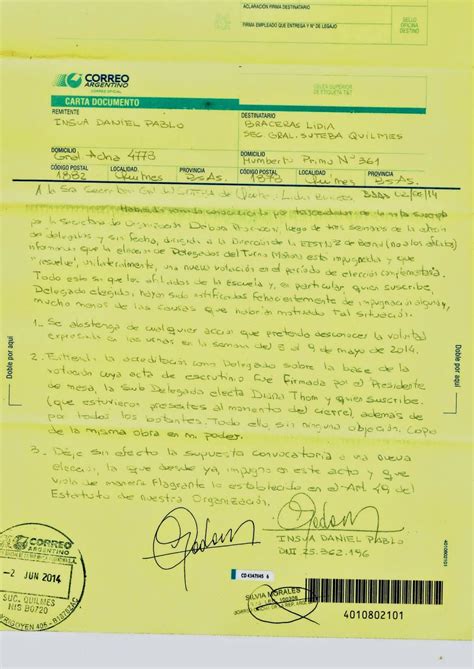 ACLARACIÓN FIRMA DESTINATARIO
FIRMA EMPLEADO QUE ENTREGA Y N° DE LEGAJO
SELLO
OFICINA
DESTINO
CORREO
ARGENTINO
CORREO OFICIAL
CARTA DOCUMENTO
REMITENTE
INSUA DANIEL PABLO
DESTINATARIO
BRACERAS LIDIA
SEC GRAL. SUTEBA QUILMES
DOMICILIO
Gral Acha 4778
DOMICILIO
Humberto Primo N° 361
CÓDIGO POSTAL
LOCALIDAD
PROVINCIA
1882
Quilmes
BsAs.
CÓDIGO POSTAL
LOCALIDAD
PROVINCIA
1878
Quilmes
BsAs.
A la Sra Secretaria Gral
por la secretaria de organización luego de tres semanas de la elección
de delegados y sin fecha, dirigida a la Dirección de la EESTN°2 de Bernal (no a los afiliados)
informando que la elección de Delegados del Turno Mañana está impugnada y que
"resuelve", unilateralmente, una nueva votación en el período de elección complementaria.
Todo esto sin que los afiliados de la escuela y, en particular, quien suscribe,
Delegado elegido, hayan sido notificados fehacientemente de impugnación alguna y,
mucho menos de las causas que habrían motivado tal situación.
1_ Se abstenga de cualquier accion que pretenda desconocer la voluntad
expresada en las urnas en la semana del 5 al 9 de mayo de 2014.
2_ Extienda la acreditación como Delegado sobre la base de la
votación cuya acta de escrutinio fue firmada por el Presidente
de mesa, la Sub Delegada electa Diana Thom y quien suscribe.
(que estuvieron presentes al momento del cierre), además de
por todos los votantes. Todo ello sin ninguna objeción. Copia
de la misma obra en mi poder.
3_ Deje sin efecto la supuesta convocatoria a una nueva
elección, la que desde ya, impugno en este acto y que
viola de manera flagrante lo establecido en el Art 49 del
Estatuto de nuestra Organización.
INSUA DANIEL PABLO
DNI 25.362.196
Doble por aquí
Doble por aquí
CORREO
ARGENTINO
-2 JUN 2014
SUC. QUILMES
NIS B0720
SILVIA MORALES
4010802101
4010802101